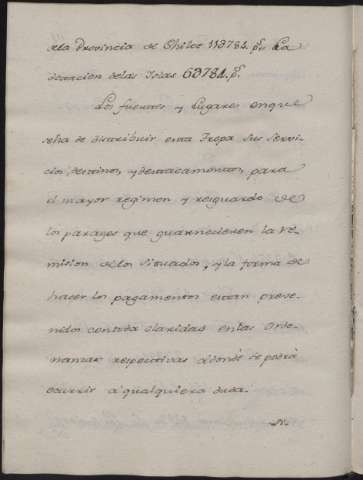 dela Provincia de Chiloe 11Ɵ784. p.s La
dotacion delas Yslas 6Ɵ784. p.s
Los fuertes y Lugares enque
seha de distribuir esta Tropa sus servi-
cios, destinos, y destacamentos, para
el mayor regimen y resguardo de
los parages que guarnecieren la re-
mision delos situados, y la forma de
hacer los pagamentos estan preve-
nidos contoda claridad enlas Orde-
nanzas respectivas adonde se podrá
ocurrir à qualquiera duda.